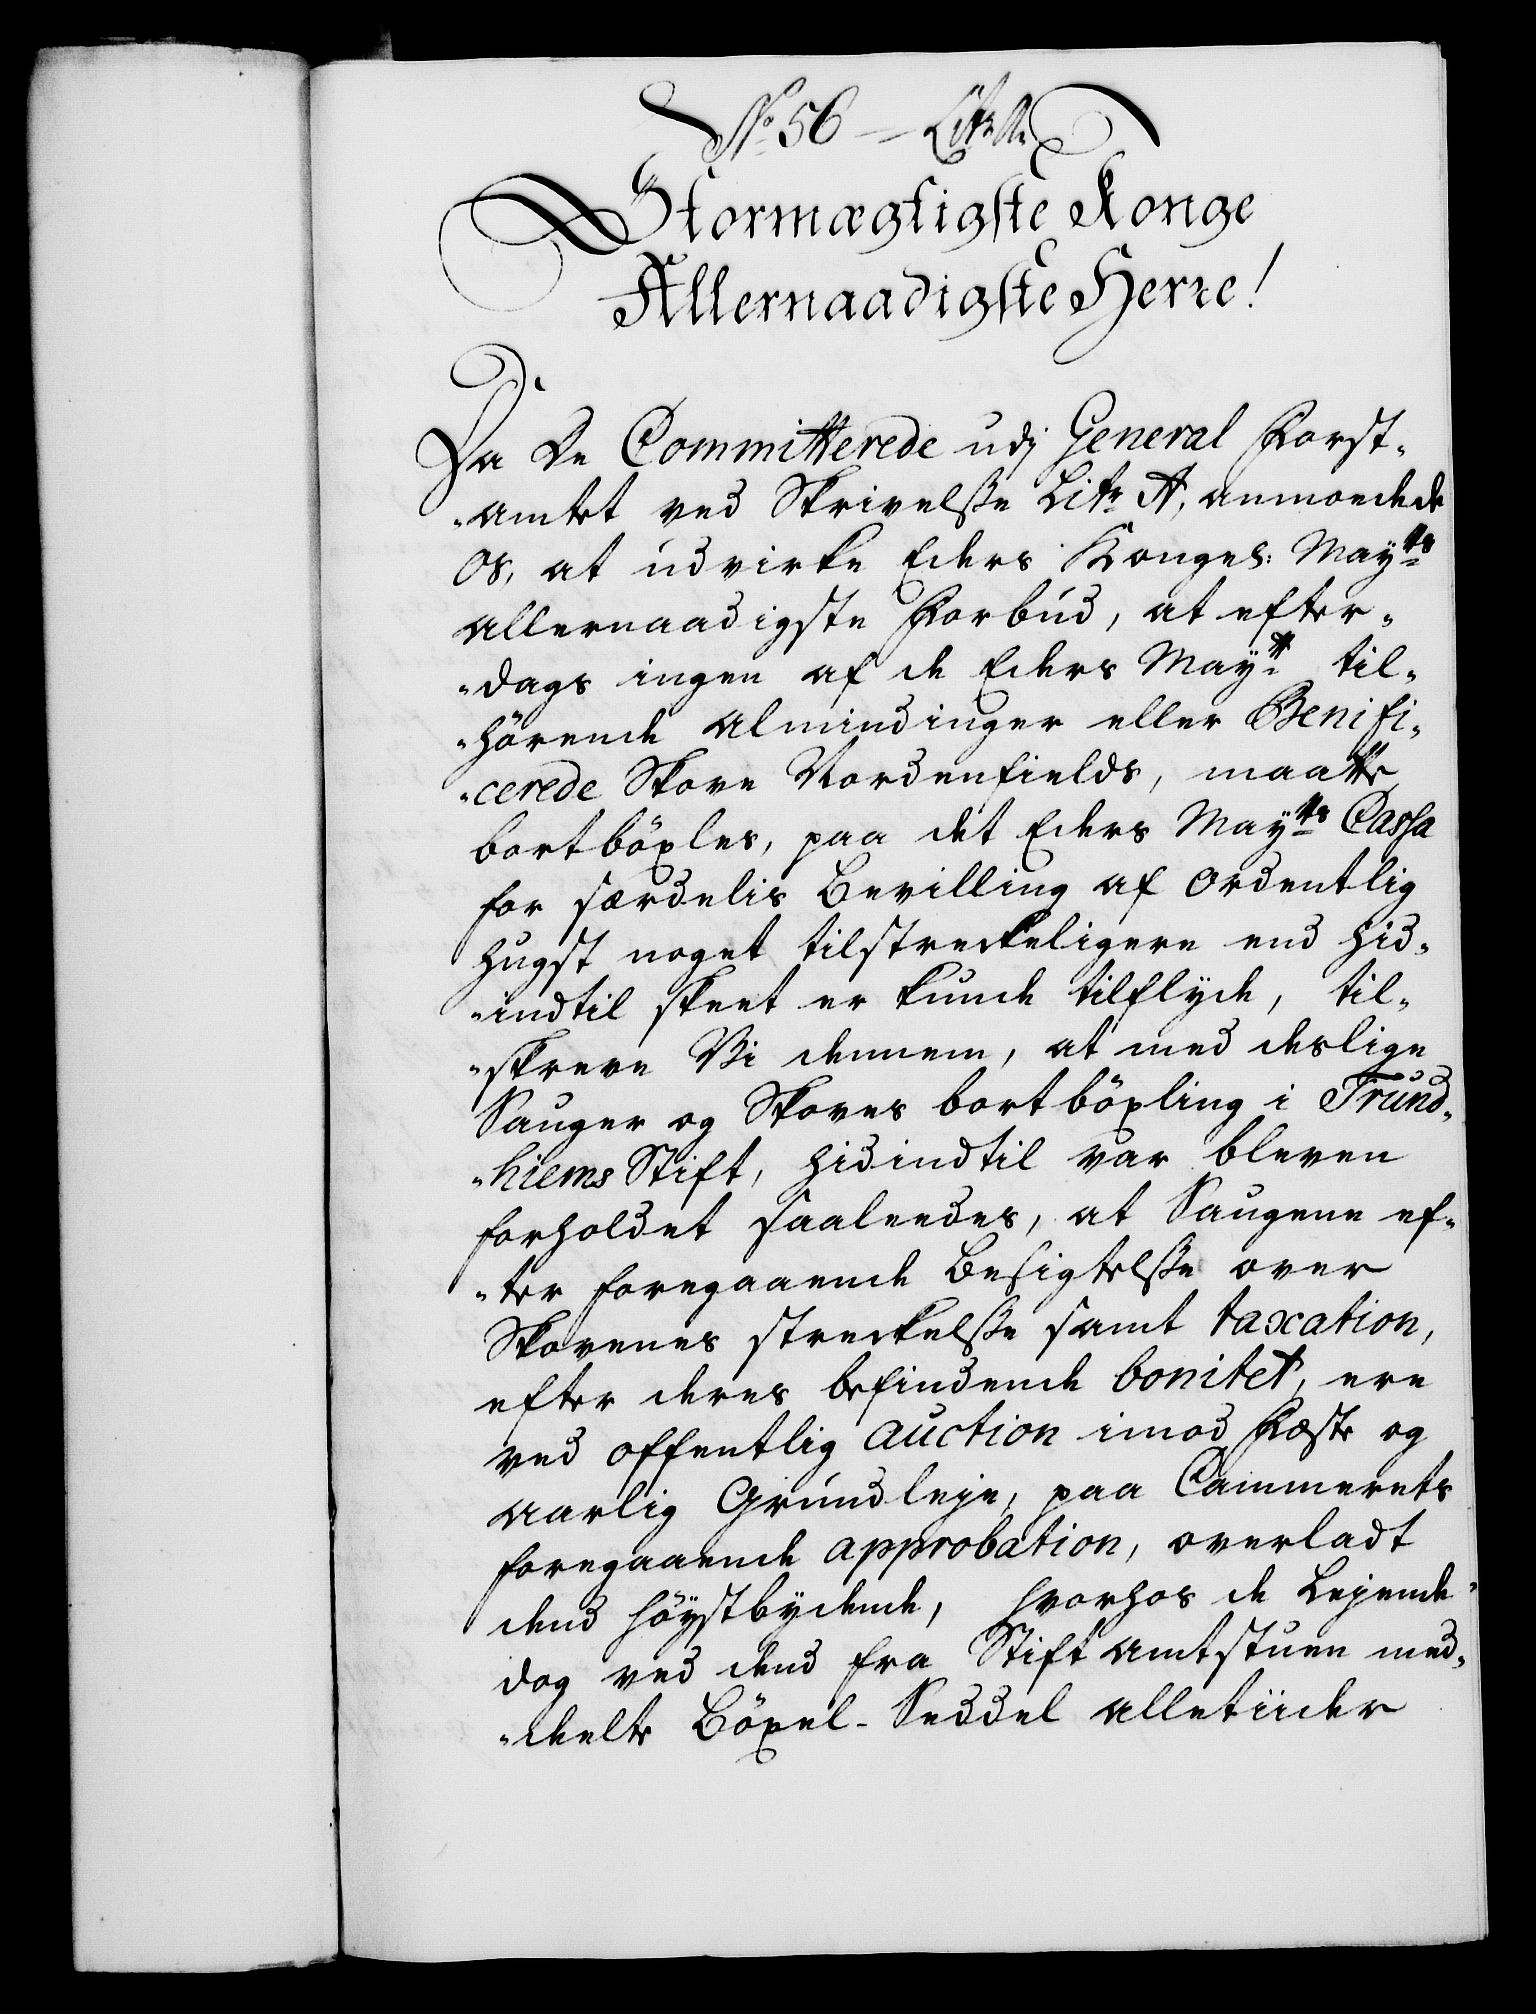 No. 56 — Litr. A.
Stormægtigste Konge
Allernaadigste Herre!
Da De Committerede udj General Forst-
-amtet ved Skrivelsse Litr A, anmoedede
Os, at udvirke Eders Konges: Mayts
allernaadigste Forbud, at efter-
-dags ingen af de Eders Mayt til-
-hörende Almindinger eller Benifi-
-cerede Skove Nordenfields, maatte
bortböxles, paa det Eders Mayts Cassa
for særdelis Bevilling af ordentlig
Hugst noget tilstreckeligere end hid-
-indtil skeet er kunde tilflyde, til-
-skreve Vi dennem, at med deslige
Sauger og Skoves bortböxling i Trund-
-hiems Stift, hidindtil var bleven
forholdet saaleedes, at Saugene ef-
-ter foregaaende Besigtelsse over
Skovenes streckelsse samt taxation,
efter deres befindende bonitet, ere
ved offentlig auction imod Fæste og
aarlig Grundleje, paa Cammerets
foregaaende approbation, overladt
dend höystbydende, hvorhos de Lejende
dog ved dend fra Stift Amtstuen med-
-deelte Böxel-Seddel alletiider